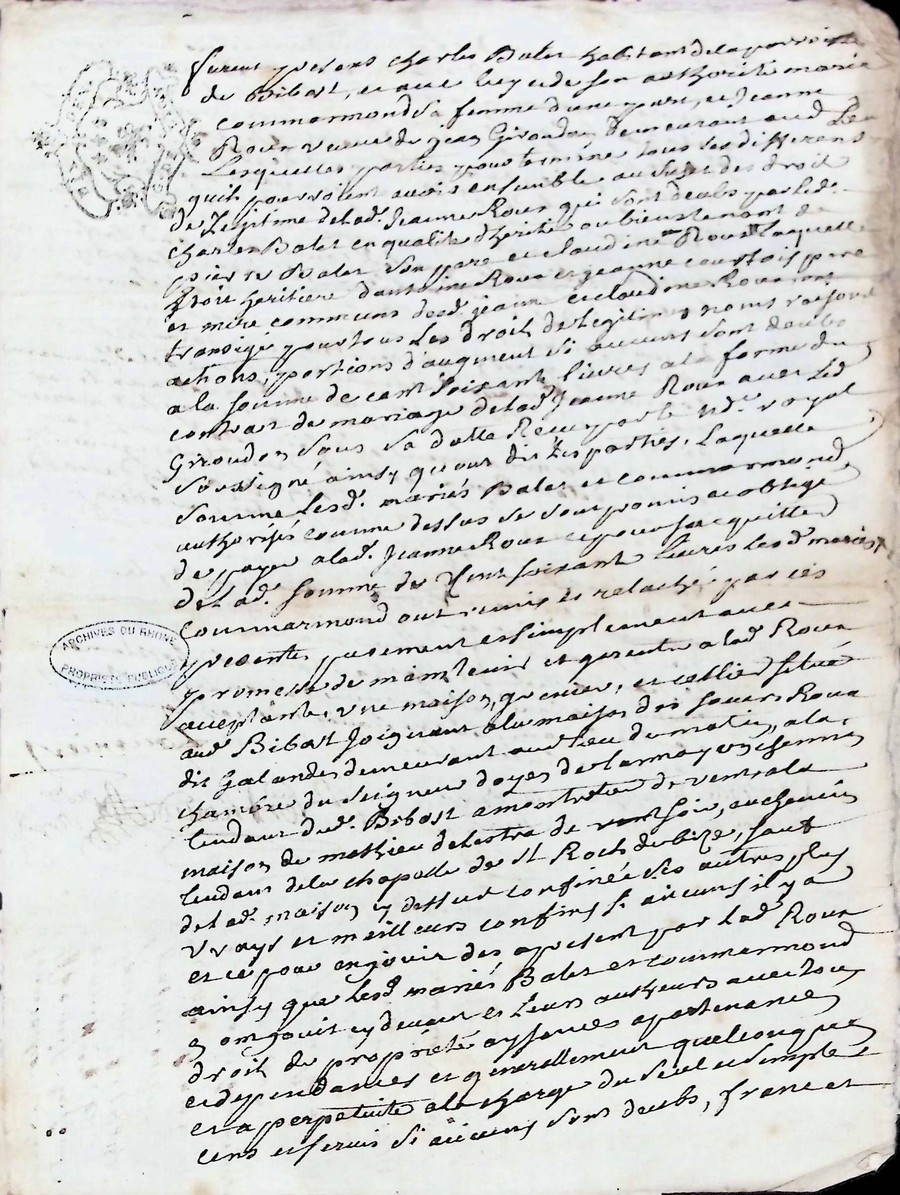 furent presens charles Balet habitant de la parroisse
de Bibost, et avec luy et de son authorité marie
commarmond sa femme d'une part, et Jeanne
Roux veuve de jean Giroudon demeurant aud Lieu
Lesquelles parties pour terminer tous les differens
quils pourroient avoir ensemble au sujet des droit
de Legitime de lad. Jeanne Roux qui sont deubs par led.
charles Balet en qualité d'heritier ou bientenant de
pierre Balet son pere et claudine Roux laquelle
Etoit heritiere d'antoine Roux et jeanne courtois pere
et mere communs desd. jeanne et claudine Roux ont
transigé pour tous Les droit de Legitimes noms raisons
actions, portions d'augment si aucuns sont deubs
a la somme de cent soixante livres a la forme du
contrat de mariage de lad. Jeanne Roux avec led
Giroudon sous sa datte Receu par le nore. royal
soussigné ainsy qu'ont dit Les parties, Laquelle
somme Lesd. mariés Balet et commarmond,
authorisés comme dessus se sont promis et obligé
de payer a lad. Jeanne Roux et pour s'acquitter
de lad. somme de Cent soixante livres les d. mariés
Commarmond ont remis et relaché par ces
presentes purement et simplement avec
promesse de maintenir et garentir a lad. Roux
acceptante, une maison, grenier, et cellier situé
aud. Bibost Joignant a la maison des sieurs Roux
dit Galandes demeurant au lieu de matin, a la
chambre du seigneur doyen de
tendant dud. Bibost a montrotier de vent a la
maison de mathieu delestra de vent soir, au chemin
tendant de la chapelle de St Roch de bize, sauf
de lad. maison cy dessus confinée ses autres plus
vrays et meilleurs confins si aucuns il y a
et ce pour en jouir des apresent par lad. Roux
ainsy que Lesd. mariés Balet et commarmond
en ont jouit cy devant et Leurs autheurs avec tous
droit de proprieté aysances apartenances
et dependances et generallement quelconques
et a perpetuité a la charge du seul et simple
cens et servis si aucuns sont deubs, franc et
ARCHIVES DU RHONE
PROPRIETE PUBLIQUE